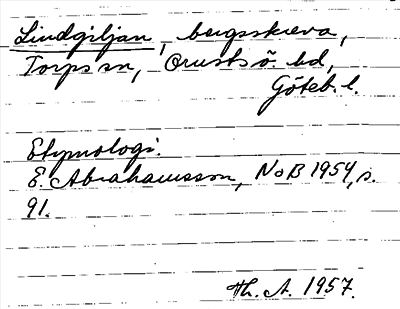 Lindgiljan, bergsskreva,
Torps sn, Orusts ö. hd,
Göteb. l.
Etymologi.
E. Abrahamsson, NoB 1954, s.
91.
Th. A. 1957.